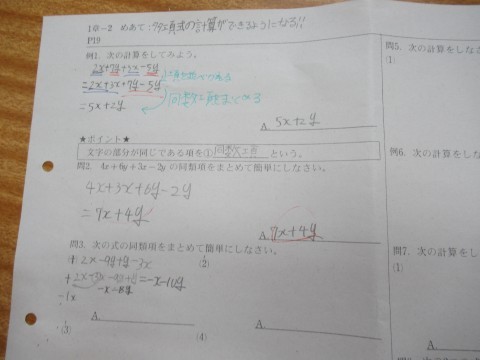 1章-2 めあて:多項式の計算ができるようになる!!
P19
例1.次の計算をしてみよう。
2x+7y+3x-5y
=2x+3x+7y-5y
=5x+2y
A. 5x+2y
★ポイント★
文字の部分が同じである項を① という。
問2. 4x+6y+3x-2yの同類項をまとめて簡単にしなさい。
4x+3x+6y-2y
=7x+4y
A. 7x+4y
問3.次の式の同類項をまとめて簡単にしなさい。
(1) 2x-9y+y-3x
(2)
=-x-10y
A.
A.
(3)
(4)
問5.次の計算をしなさ
(1)
例6.次の計算をしな
問7.次の計算をし
(1)